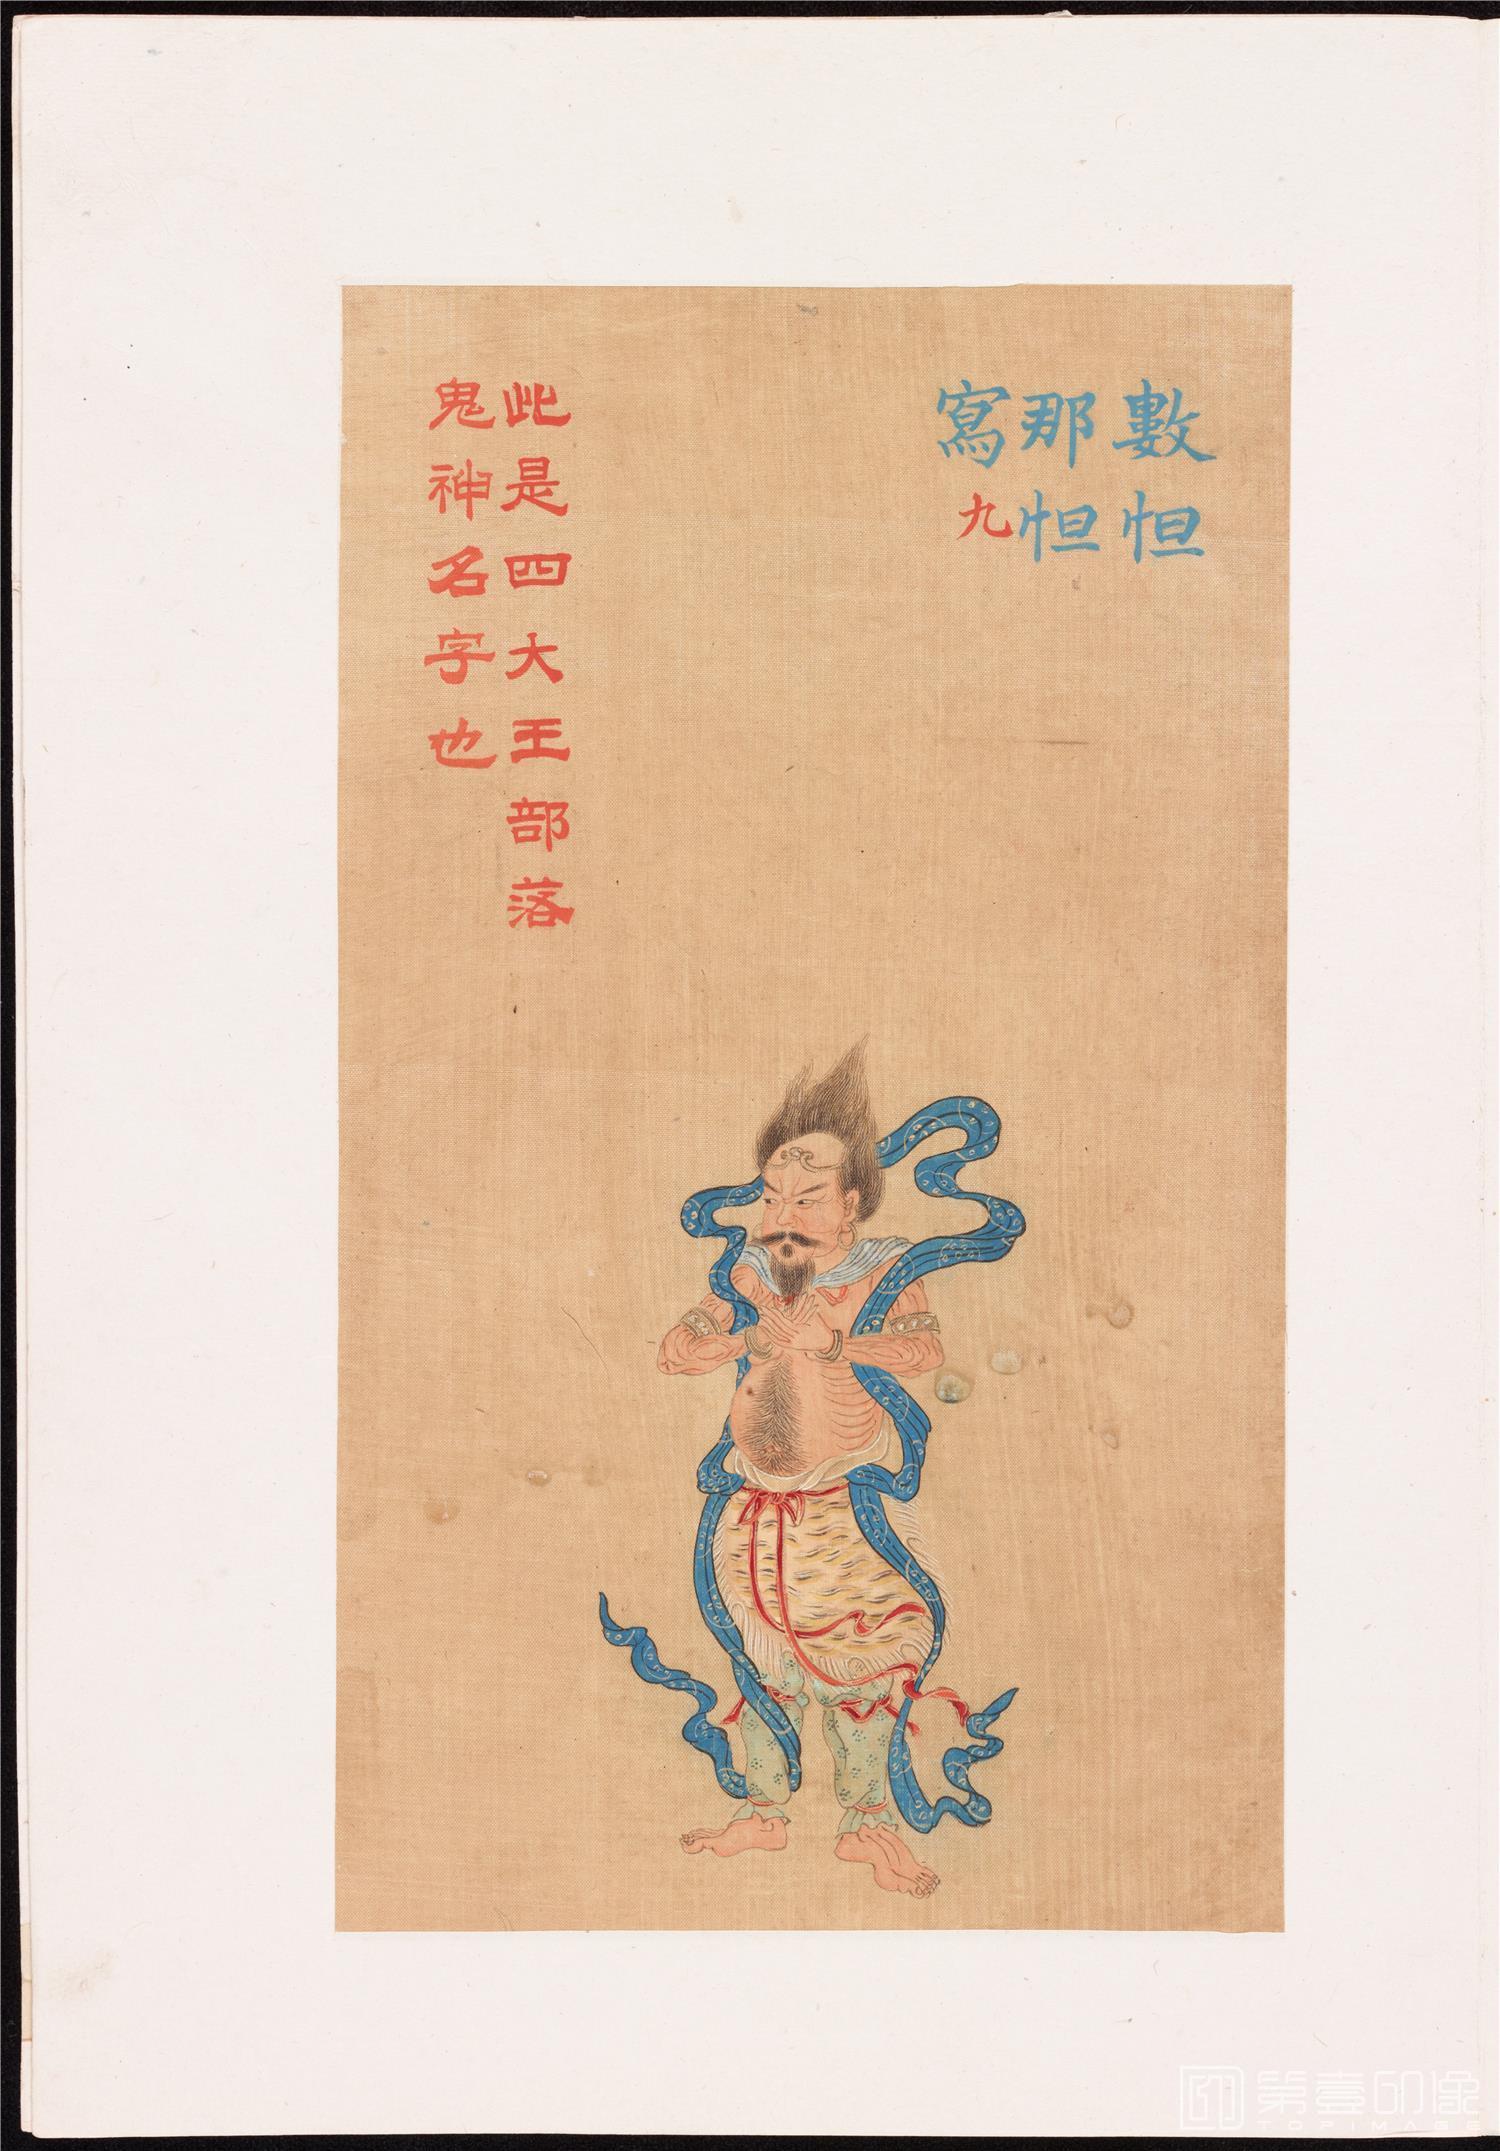 數怛
那怛
寫九
此是四大王部落
鬼神名字也
第壹印像
TOPIMAGE